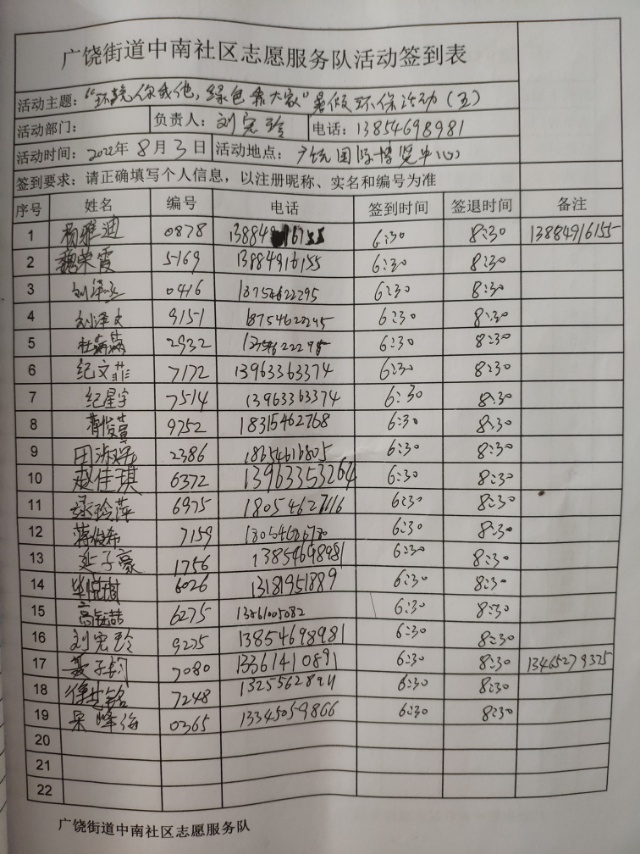 广饶街道中南社区志愿服务队活动签到表
活动主题：“环境你我他，绿色靠大家”暑假环保活动（五）
活动部门： 负责人：刘宪玲 电话：13854698981
活动时间：2022年8月3日 活动地点：广饶国际博览中心
签到要求：请正确填写个人信息，以注册昵称、实名和编号为准
序号 姓名 编号 电话 签到时间 签退时间 备注
1 杨雅迪 0878 6:30 8:30 13884916155
2 魏荣霞 5169 13884916155 6:30 8:30
3 0416 18754622295 6:30 8:30
4 9151 6:30 8:30
5 2932 6:30 8:30
6 纪文菲 7172 13963363374 6:30 8:30
7 纪星宇 7514 13963363374 6:30 8:30
8 9752 18315462768 6:30 8:30
9 2386 18654616805 6:30 8:30
10 赵佳琪 6372 13963353264 6:30 8:30
11 6975 18054627116 6:30 8:30
12 7159 6:30 8:30
13 1756 13854698981 6:30 8:30
14 6026 6:30 8:30
15 6275 13561005082 6:30 8:30
16 刘宪玲 9275 13854698981 6:30 8:30
17 7080 13361410891 6:30 8:30 13465279325
18 7248 6:30 8:30
19 0365 13345059866 6:30 8:30
20
21
22
广饶街道中南社区志愿服务队